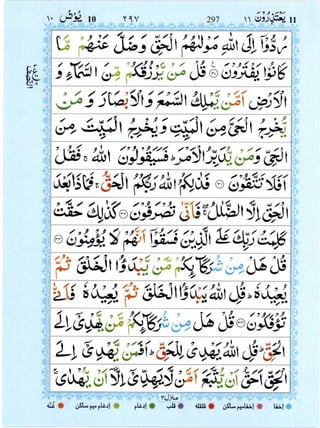 11 يَعْتَذِرُوْنَ ١١ 297 ٢٩٧ 10 يُوْنُسَ ١٠
رُدُّوْٓا اِلَى اللّٰهِ مَوْلٰىهُمُ الْحَقِّ وَضَلَّ عَنْهُمْ مَّا
كَانُوْا يَفْتَرُوْنَ ۝٣٠ قُلْ مَنْ يَّرْزُقُكُمْ مِّنَ السَّمَآءِ وَ
الْاَرْضِ اَمَّنْ يَّمْلِكُ السَّمْعَ وَ الْاَبْصَارَ وَ مَنْ
يُّخْرِجُ الْحَيَّ مِنَ الْمَيِّتِ وَ يُخْرِجُ الْمَيِّتَ مِنَ
الْحَيِّ وَ مَنْ يُّدَبِّرُ الْاَمْرَ ؕ فَسَيَقُوْلُوْنَ اللّٰهُ ۚ فَقُلْ
اَفَلَا تَتَّقُوْنَ ۝٣١ فَذٰلِكُمُ اللّٰهُ رَبُّكُمُ الْحَقُّ ۚ فَمَاذَا بَعْدَ
الْحَقِّ اِلَّا الضَّلٰلُ ۖ فَاَنّٰى تُصْرَفُوْنَ ۝٣٢ كَذٰلِكَ حَقَّتْ
كَلِمَتُ رَبِّكَ عَلَى الَّذِيْنَ فَسَقُوْۤا اَنَّهُمْ لَا يُؤْمِنُوْنَ ۝٣٣
قُلْ هَلْ مِنْ شُرَكَآئِكُمْ مَّنْ يَّبْدَؤُا الْخَلْقَ ثُمَّ
يُعِيْدُهٗ ؕ قُلِ اللّٰهُ يَبْدَؤُا الْخَلْقَ ثُمَّ يُعِيْدُهٗ فَاَنّٰى
تُؤْفَكُوْنَ ۝٣٤ قُلْ هَلْ مِنْ شُرَكَآئِكُمْ مَّنْ يَّهْدِيْۤ اِلَى
الْحَقِّ ؕ قُلِ اللّٰهُ يَهْدِيْ لِلْحَقِّ ؕ اَفَمَنْ يَّهْدِيْۤ اِلَى
الْحَقِّ اَحَقُّ اَنْ يُّتَّبَعَ اَمَّنْ لَّا يَهِدِّيْۤ اِلَّاۤ اَنْ يُّهْدٰى ۚ
منزل ٣
اخفا اخفا میم ساکن قلقلہ قلب ادغام ادغام میم ساکن غنّہ